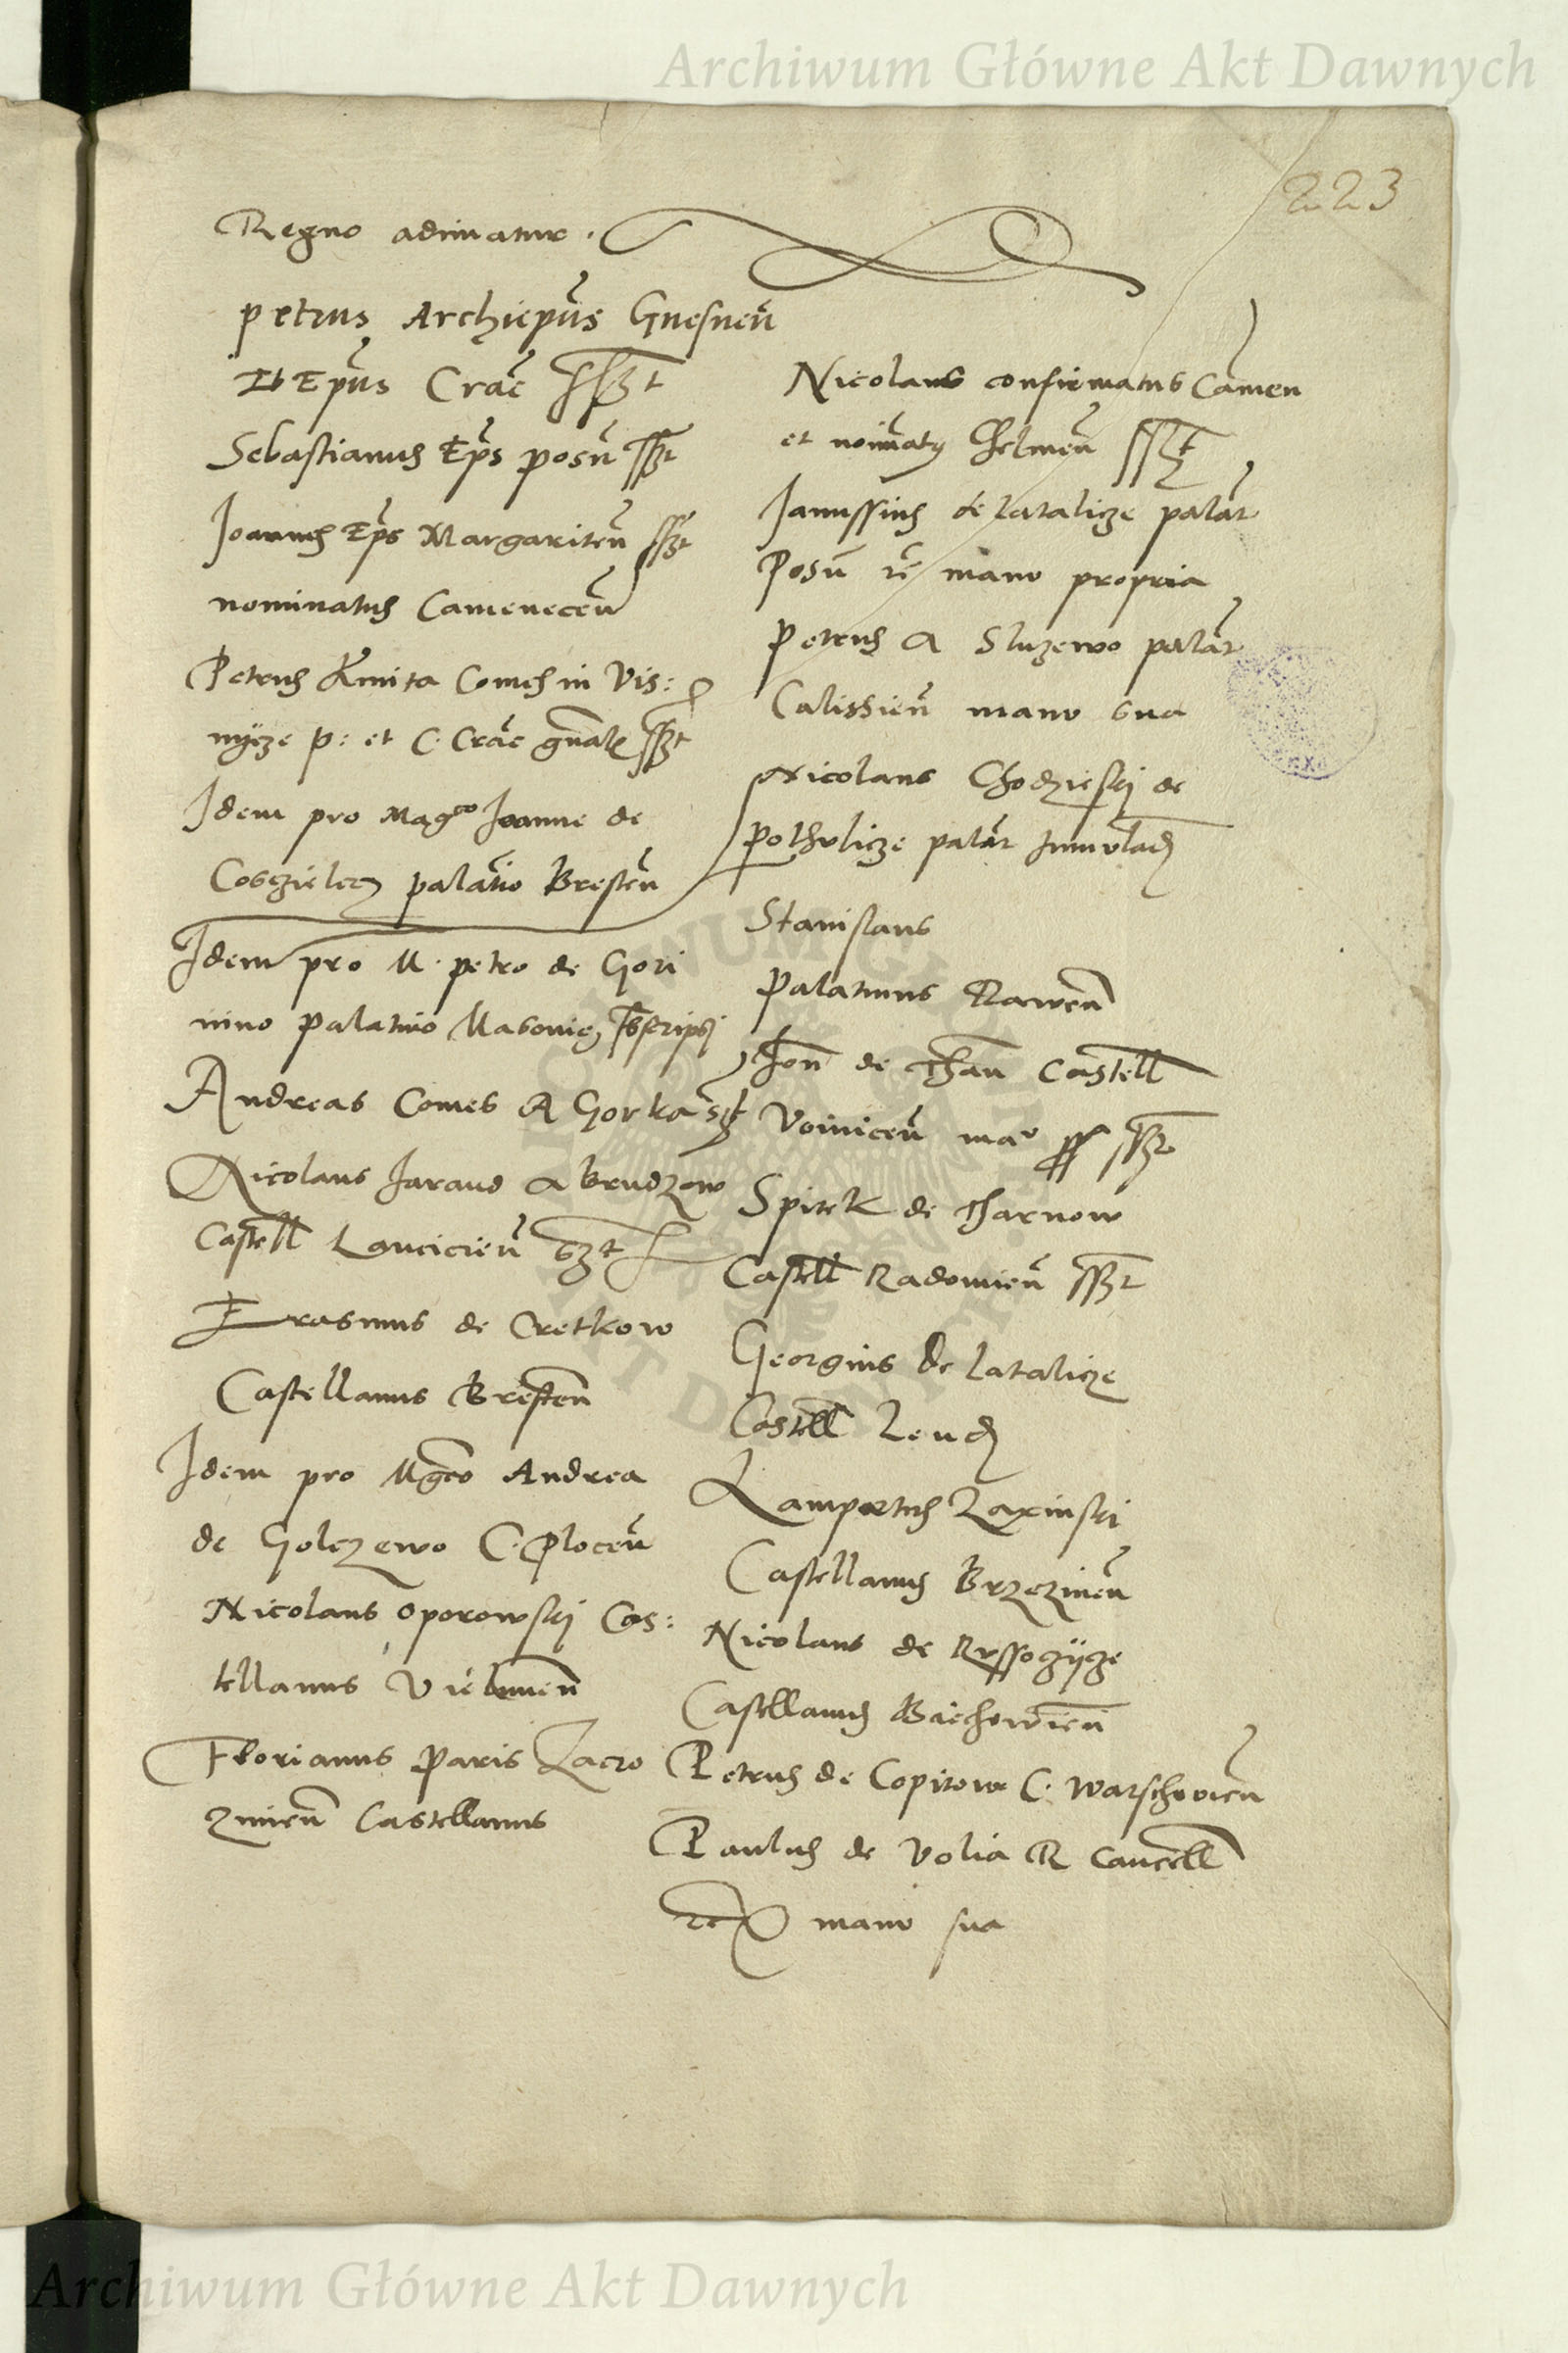 Archiwum Główne Akt Dawnych
223
Regno adimatur.
petrus Archiepũs Gnesneñ
Et Epũs Crac̃ sszt
Sebastianus Ep̃s posñ sszt
Joannes Ep̃s Margariteñ sszt
nominatus Cameneceñ
Petrus Kmita Comes in Vis:
nycze p: et C. Crac̃ gñal sszt
Idem pro Mag.co Joanne de
Coszielecz palatĩo Bresteñ
Idem pro M. petro de Gori
nino Palatino Masovie sbscripsj
Andreas Comes A Gorka
Nicolaus Jarand a brudzow
Castell Lancicieñ szt
Erasmus de Cretkow
Castellanus Bresteñ
Idem pro Mgco Andrea
de Golczewo C. Ploceñ
Nicolaus Oporowskj Cas:
tellanus Vieluneñ
Florianus Paris Zacro
zimeñ Castellanus
Nicolaus confirmatus Camen
et noiñatq Chelmeñ sszt
Janussius de latalicze palat̃
Posñ rc̃ manu propria
Petrus A Sluzewo palat̃
Calissieñ manu sua
Nicolaus Chodzieskj de
potholicze palat̃ Junivlad
Stanislaus
Palatinus Raweñ
Joñ de Tharñ Castell
Voiniceñ ma͞u pp sszt
Spitek de Tharnow
Castell Radomieñ sszt
Georgius De latalicze
Castell Lend
Lampertus Zaxinskj
Castellanus Brzezineñ
Nicolaus de
Castellanus Biechowieñ
Petrus de Copitow C. Warschovieñ
Paulus de Volia R Cancell
rc manu sua
Archiwum Główne Akt Dawnych